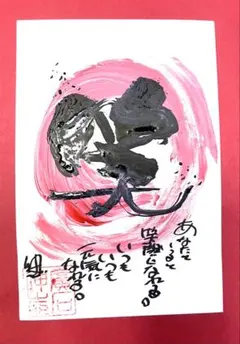 笑
あなたと
いると
笑顔になれる。
いつも
いつも
元気に
なれる。